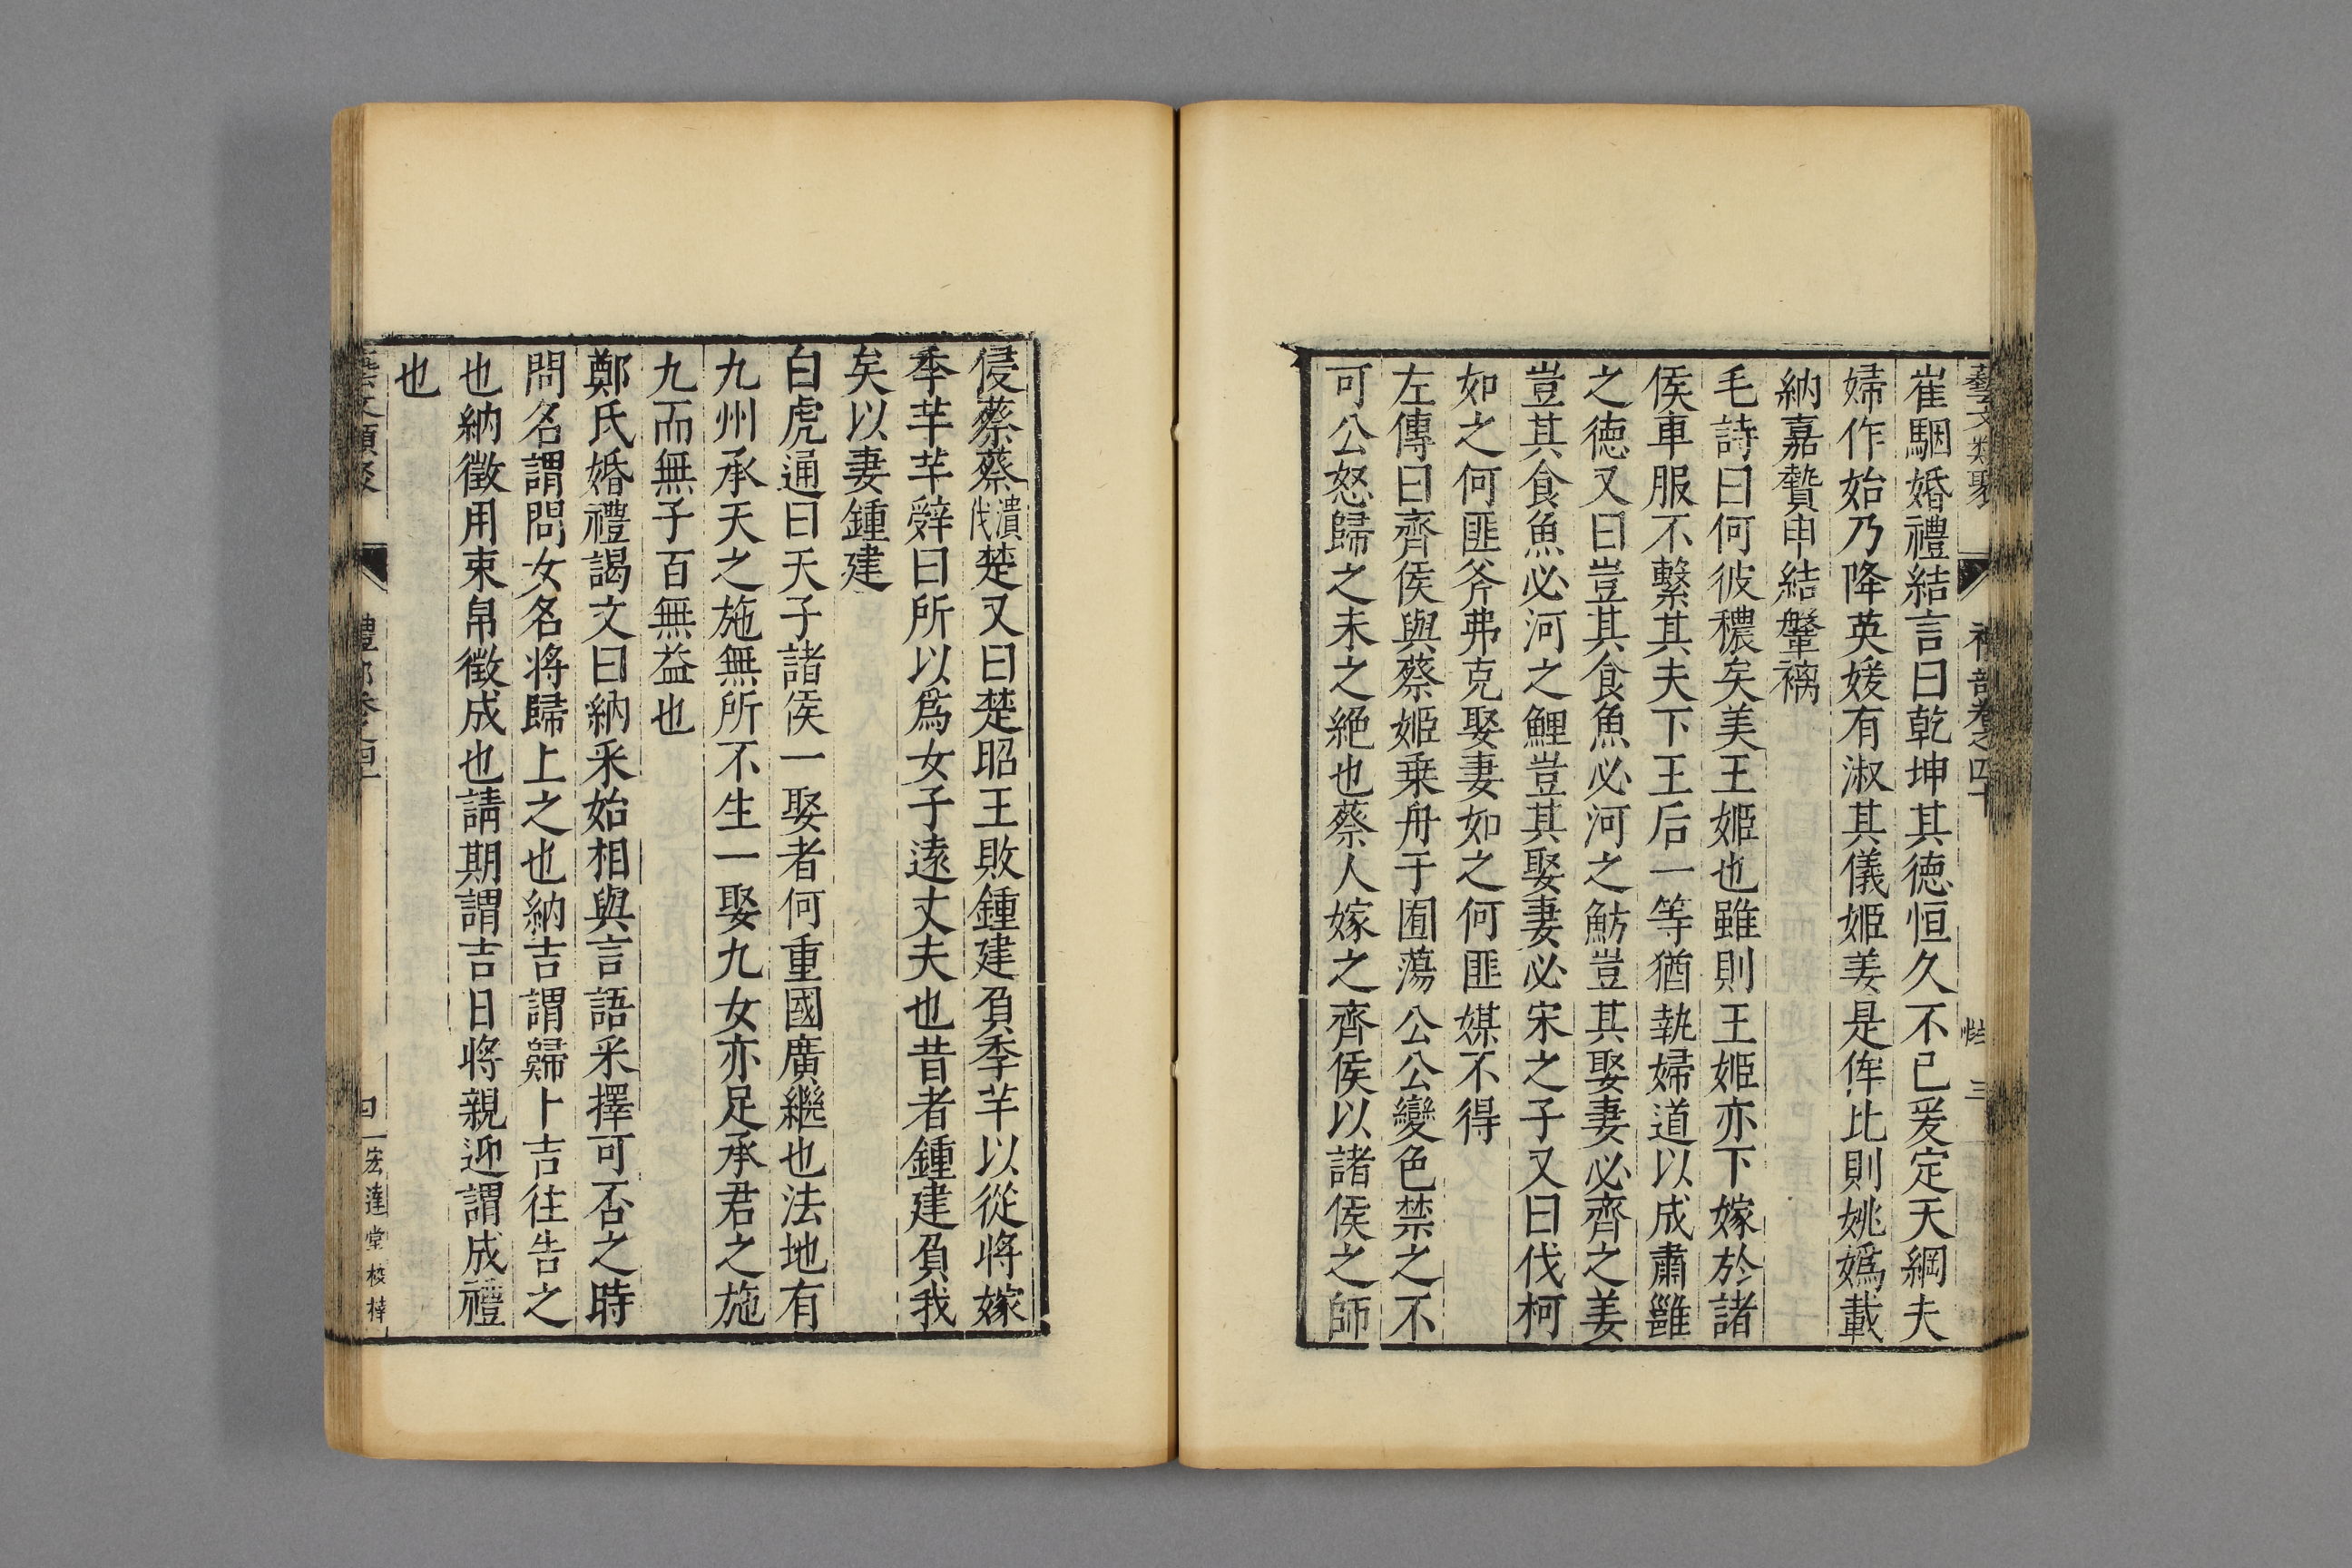 藝文類聚 禮部卷之四十 三
崔駰婚禮結言曰乾坤其德恒久不已爰定天綱夫
婦作始乃降英媛有淑其儀姬姜是侔比則姚嬀載
納嘉贄申結鞶褵
毛詩曰何彼穠矣美王姬也雖則王姬亦下嫁於諸
侯車服不繫其夫下王后一等猶執婦道以成肅雝
之德又曰豈其食魚必河之魴豈其娶妻必齊之姜
豈其食魚必河之鯉豈其娶妻必宋之子又曰伐柯
如之何匪斧弗克娶妻如之何匪媒不得
左傳曰齊侯與蔡姬乗舟于囿蕩公公變色禁之不
可公怒歸之未之絕也蔡人嫁之齊侯以諸侯之師
侵蔡蔡潰伐楚又曰楚昭王敗鍾建負季芊以從将嫁
季芊芊辤曰所以爲女子逺丈夫也昔者鍾建負我
矣以妻鍾建
白虎通曰天子諸侯一娶者何重國廣繼也法地有
九州承天之施無所不生一娶九女亦足承君之施
九而無子百無益也
鄭氏婚禮謁文曰納采始相與言語采擇可否之時
問名謂問女名将歸上之也納吉謂歸卜吉往告之
也納徵用束帛徵成也請期謂吉日将親迎謂成禮
也
藝文類聚 禮部卷之四十 四 宏達堂校梓